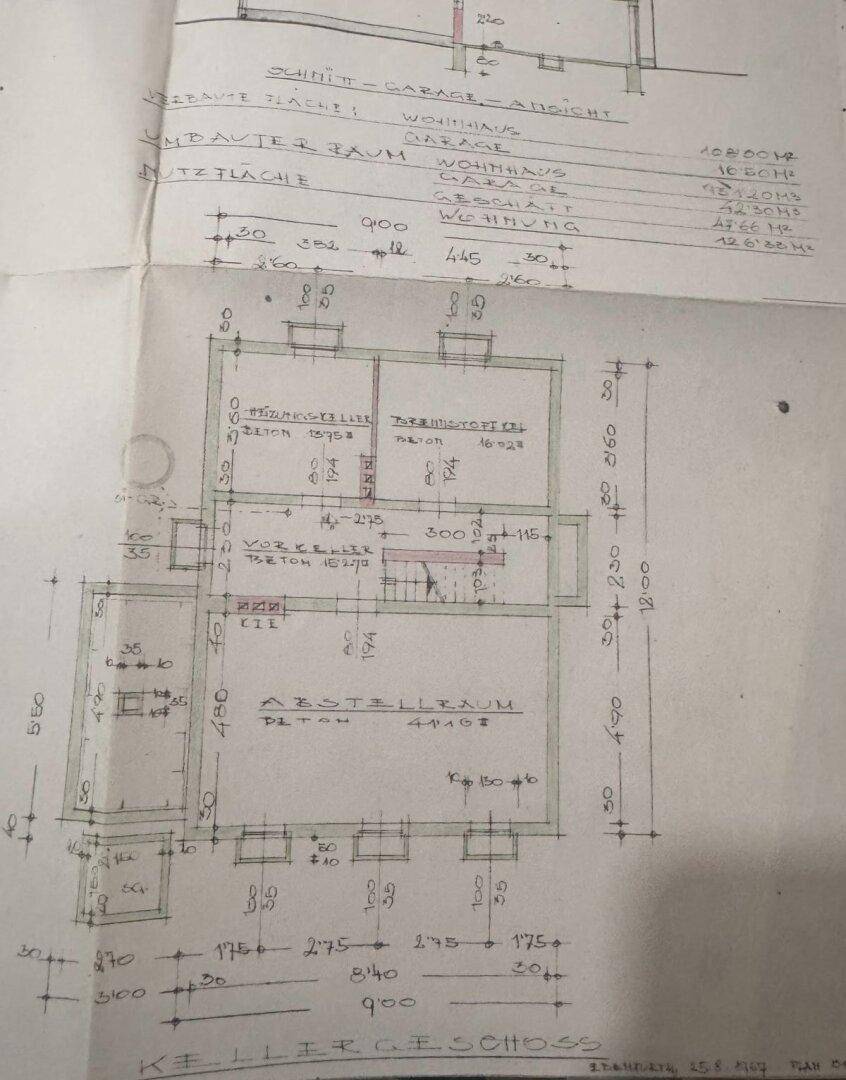 220
60
SCHNITT - GARAGE - ANSICHT
VERBAUTE FLÄCHE: WOHNHAUS 108'00 M2
GARAGE 16'50 M2
UMBAUTER RAUM WOHNHAUS
GARAGE 42'30 M3
NUTZFLÄCHE GESCHÄFT 47'66 M2
WOHNUNG 126'33 M2
9'00
30 382 12 445 30
2'60 2'60
100 35 100 35
30
HEIZUNGSKELLER BRENNSTOFFKEL
BETON 13'75 BETON 16'02
3'60 30 80 194 80 194
30 3'60 30
2'75
300 102 25 115
100
35
VORKELLER
BETON 15'27
230 103 230 12'00
KIE
40 80 194 30
30
35
10 10
10 35
10
5'50 4'90 480 4'90
ABSTELLRAUM
BETON 41'16
10 130 10
30 30 30
40
50
10
150
SG.
100 35 100 35 100 35
30 270 1'75 2'75 2'75 1'75
30 8'40 30
3'00
9'00
KELLERGESCHOSS
25.8.1967 PLAN